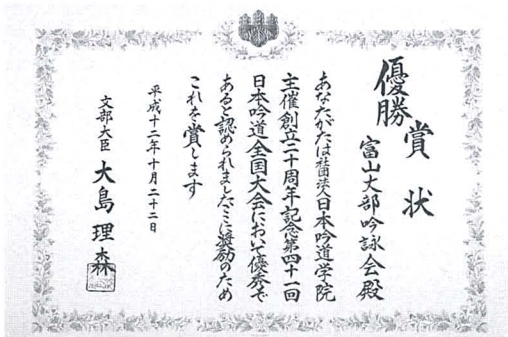 優勝賞状
富山大部吟詠会殿
あなたがたは社団法人日本吟道学院
主催創立二十周年記念第四十一回
日本吟道全国大会において優秀で
あると認められましたここに奨励のため
これを賞します
平成十二年十月二十二日
文部大臣 大島理森